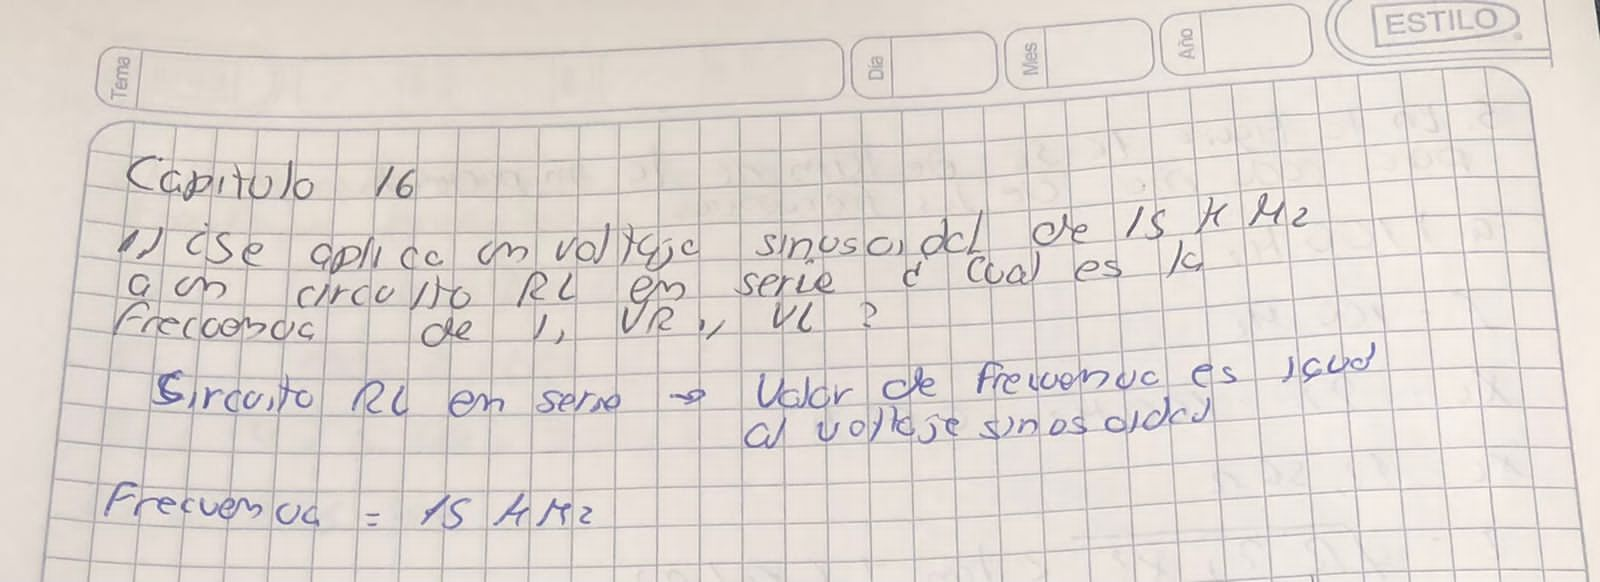 ESTILO
Tema
Día
Mes
Año
Capitulo 16
1) ¿Se aplica un voltaje sinusoidal de 15 KHz
a un circuito RL en serie ¿ Cual es la
Frecuencia de I, VR, VL ?
Sircuito RL en serie → Valor de frecuencia es igual
al voltaje sinosoidal
Frecuencia = 15 KHz